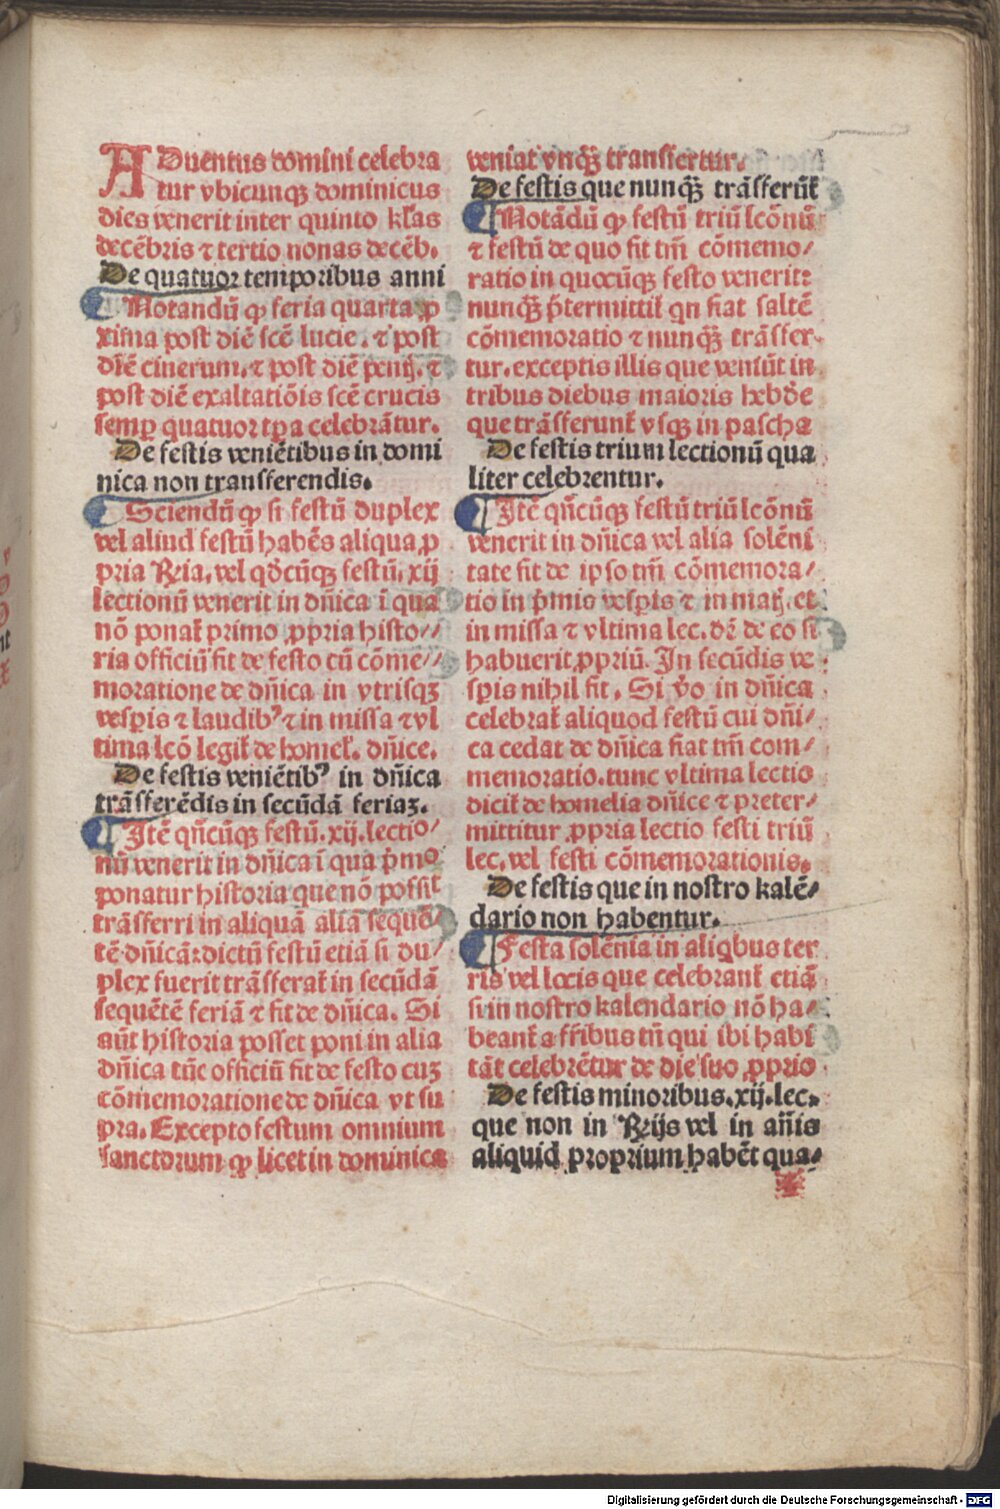 ADuentus domini celebra
tur vbicunqꝫ dominicus
dies venerit inter quinto kl̄as
decēbris ⁊ tertio nonas decēb.
De quatuor temporibus anni
¶ Notandū ꝙ feria quarta ꝓ
xima post diē scē lucie. ⁊ post
diē cinerum. ⁊ post diē pentꝭ. ⁊
post diē exaltatiōis scē crucis
semꝑ quatuor tꝑa celebrātur.
De festis veniētibus in domi
nica non transferendis.
¶ Sciendū ꝙ si festū duplex
vel aliud festū habēs aliqua ꝓ
pria Rīa, vel qd̄cūqꝫ festū. xij
lectionū venerit in dn̄ica ī qua
nō ponat᷑ primo ꝓpria histo⸗
ria officiū fit de festo cū cōme⸗
moratione de dn̄ica in vtrisqꝫ
vesꝑis ⁊ laudibꝰ ⁊ in missa ⁊ vl
tima lcō legit᷑ de homel᷑. dn̄ice.
De festis veniētibꝰ in dn̄ica
trāsferēdis in secūdā feriaꝫ.
¶ Itē qn̄cūqꝫ festū. xij. lectio⸗
nū venerit in dn̄ica ī qua p̄mo
ponatur historia que nō possit
trāsferri in aliquā aliā sequē⸗
tē dn̄icā: dictū festū etiā si du⸗
plex fuerit trāsferat᷑ in secūdā
sequētē feriā ⁊ fit de dn̄ica. Si
aūt historia posset poni in alia
dn̄ica tūc officiū fit de festo cuꝫ
cōmemoratione de dn̄ica vt su
pra. Excepto festum omnium
sanctorum ꝙ licet in dominica
veniat vnqꝫ̄ transfertur.
De festis que nunqꝫ̄ trāsferūt᷑
¶ Notādū ꝙ festū triū lcōnū
⁊ festū de quo fit tm̄ cōmemo⸗
ratio in quocūqꝫ festo venerit:
nunqꝫ̄ p̄termittit᷑ qn fiat saltē
cōmemoratio ⁊ nunqꝫ̄ trāsfer⸗
tur. exceptis illis que veniūt in
tribus diebus maioris hebd̄e
que trāsferunt᷑ vsqꝫ in pascha
De festis trium lectionū qua
liter celebrentur.
¶ Itē qn̄cūqꝫ festū triū lcōnū
venerit in dn̄ica vel alia solēni
tate fit de ipso tm̄ cōmemora⸗
tio in p̄mis vesꝑis ⁊ in matꝭ. et
in missa ⁊ vltima lec. dr̄ de eo si
habuerit ꝓpriū. In secūdis ve
sꝑis nihil fit. Si v̄o in dn̄ica
celebrat᷑ aliquod festū cui dn̄i⸗
ca cedat de dn̄ica fiat tm̄ com⸗
memoratio. tunc vltima lectio
dicit᷑ de homelia dn̄ice ⁊ preter⸗
mittitur ꝓpria lectio festi triū
lec. vel festi cōmemorationis.
De festis que in nostro kalē⸗
dario non habentur.
¶ Festa solēnia in aliqbus ter
ris vel locis que celebrant᷑ etiā
si in nostro kalendario nō ha⸗
beant᷑ a fr̄ibus tn̄ qui ibi habi
tāt celebrētur de die suo ꝓprio
De festis minoribus. xij. lec⸗
que non in Rīijs vel in an̄is
aliquid proprium habēt qua⸗
Digitalisierung gefördert durch die Deutsche Forschungsgemeinschaft - DFG